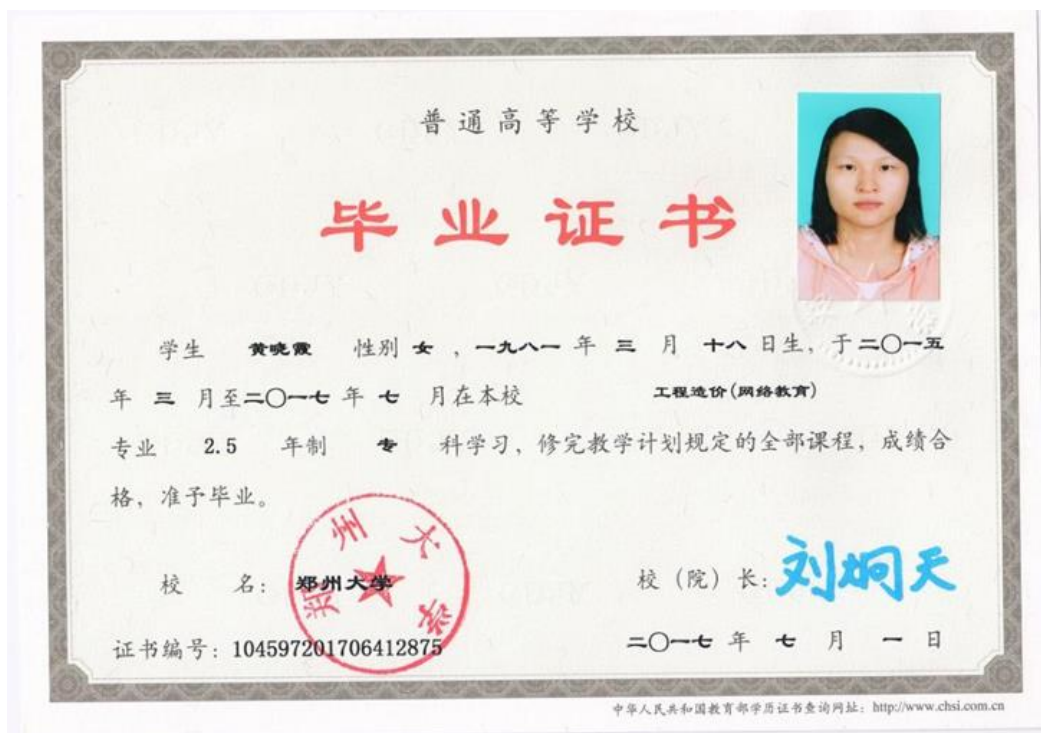 普通高等学校
毕业证书
学生 黄晓霞 性别 女 ，一九八一 年 三 月 十八 日生，于二〇一五
年 三 月至二〇一七 年 七 月在本校 工程造价(网络教育)
专业 2.5 年制 专 科学习，修完教学计划规定的全部课程，成绩合
格，准予毕业。
郑州大学
校 名：郑州大学
校（院）长：刘炯天
证书编号：104597201706412875
二〇一七 年 七 月 一 日
中华人民共和国教育部学历证书查询网址：http://www.chsi.com.cn